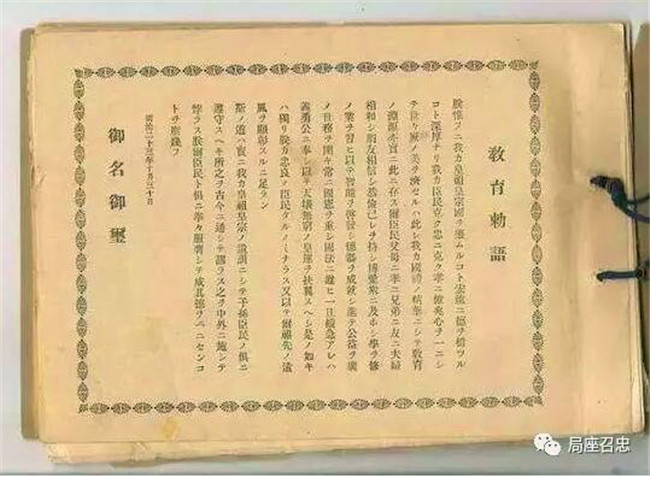 教育勅語
朕惟フニ我カ皇祖皇宗國ヲ肇ムルコト宏遠ニ德ヲ樹ツル
コト深厚ナリ我カ臣民克ク忠ニ克ク孝ニ億兆心ヲ一ニシ
テ世々厥ノ美ヲ濟セルハ此レ我カ國體ノ精華ニシテ教育
ノ淵源亦實ニ此ニ存ス爾臣民父母ニ孝ニ兄弟ニ友ニ夫婦
相和シ朋友相信シ恭儉己レヲ持シ博愛衆ニ及ホシ學ヲ修
メ業ヲ習ヒ以テ智能ヲ啓發シ德器ヲ成就シ進テ公益ヲ廣
メ世務ヲ開キ常ニ國憲ヲ重シ國法ニ遵ヒ一旦緩急アレハ
義勇公ニ奉シ以テ天壤無窮ノ皇運ヲ扶翼スヘシ是ノ如キ
ハ獨リ朕カ忠良ノ臣民タルノミナラス又以テ爾祖先ノ遺
風ヲ顯彰スルニ足ラン
斯ノ道ハ實ニ我カ皇祖皇宗ノ遺訓ニシテ子孫臣民ノ俱ニ
遵守スヘキ所之ヲ古今ニ通シテ謬ラス之ヲ中外ニ施シテ
悖ラス朕爾臣民ト俱ニ拳々服膺シテ咸其德ヲ一ニセンコ
トヲ庶幾フ
明治二十三年十月三十日
御名御璽
局座召忠